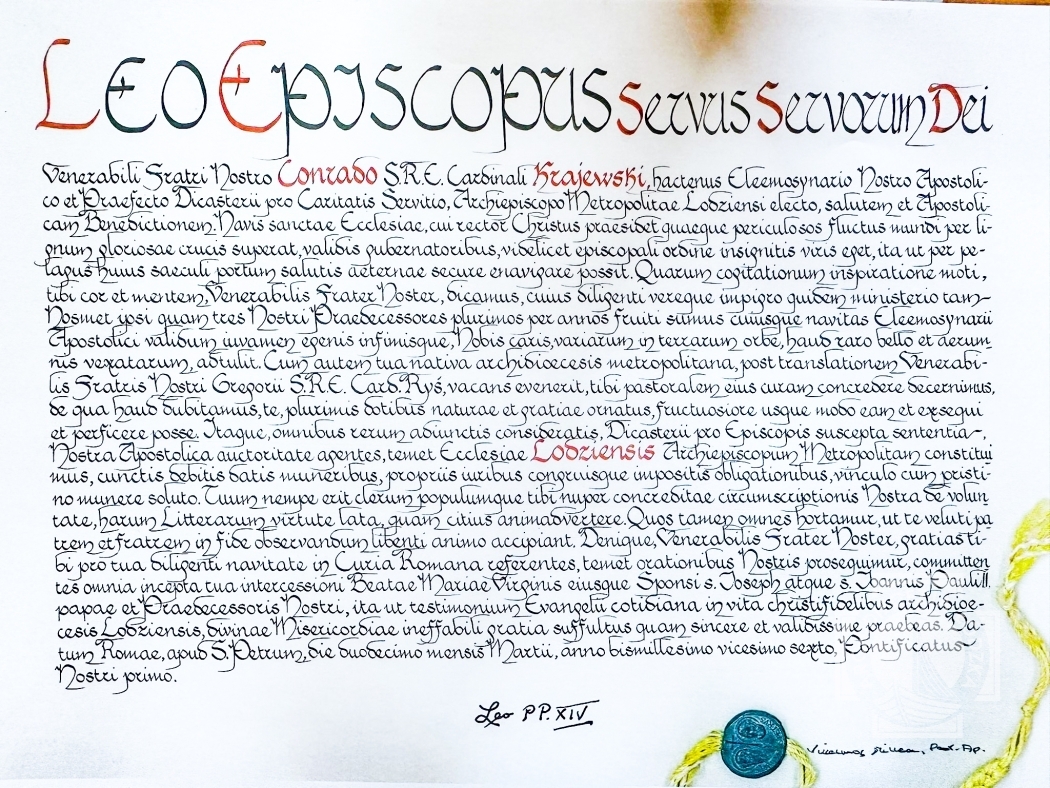 Leo Episcopus Servus Servorum Dei
Venerabili Fratri Nostro Conrado S.R.E. Cardinali Krajewski, hactenus Eleemosynario Nostro Apostoli-
co et Praefecto Dicasterii pro Caritatis Servitio, Archiepiscopo Metropolitae Lodziensi electo, salutem et Apostoli-
cam Benedictionem. Navis sanctae Ecclesiae, cui rector Christus praesidet quaeque periculosos fluctus mundi per li-
gnum gloriosae crucis superat, validis gubernatoribus, videlicet episcopali ordine insignitis viris eget, ita ut per pe-
lagus huius saeculi portum salutis aeternae secure enavigare possit. Quarum cogitationum inspiratione moti,
tibi cor et mentem, Venerabilis Frater Noster, dicamus, cuius diligenti vereque impigro quidem ministerio tam
Nosmet ipsi quam tres Nostri Praedecessores plurimos per annos fruiti sumus cuiusque navitas Eleemosynarii
Apostolici validum iuvamen egenis infimisque, Nobis caris, variarum in terrarum orbe, haud raro bello et aerum
nis vexatarum, adtulit. Cum autem tua nativa archidioecesis metropolitana, post translationem Venerabi-
lis Fratris Nostri Gregorii S.R.E. Card. Ryś, vacans evenerit, tibi pastoralem eius curam concredere decernimus,
de qua haud dubitamus, te, plurimis dotibus naturae et gratiae ornatus, fructuosiore usque modo eam et exsequi
et perficere posse. Itaque, omnibus rerum adiunctis consideratis, Dicasterii pro Episcopis suscepta sententia,
Nostra Apostolica auctoritate agentes, temet Ecclesiae Lodziensis Archiepiscopum Metropolitam constitui
mus, cunctis debitis datis muneribus, propriis iuribus congruisque impositis obligationibus, vinculo cum pristi-
no munere soluto. Tuum nempe erit clerum populumque tibi nuper concreditae circumscriptionis Nostra de volun
tate, harum Litterarum virtute lata, quam citius animadvertere. Quos tamen omnes hortamur, ut te veluti pa
trem et fratrem in fide observandum libenti animo accipiant. Denique, Venerabilis Frater Noster, gratias ti-
bi pro tua diligenti navitate in Curia Romana referentes, temet orationibus Nostris prosequimur, committen
tes omnia incepta tua intercessioni Beatae Mariae Virginis eiusque Sponsi s. Ioseph atque s. Ioannis Pauli II
papae et Praedecessoris Nostri, ita ut testimonium Evangelii cotidiana in vita christifidelibus archidioe-
cesis Lodziensis, divinae Misericordiae ineffabili gratia suffultus quam sincere et validissime praebeas. Da-
tum Romae, apud S. Petrum, die duodecimo mensis Martii, anno bismillesimo vicesimo sexto, Pontificatus
Nostri primo.
Leo PP. XIV